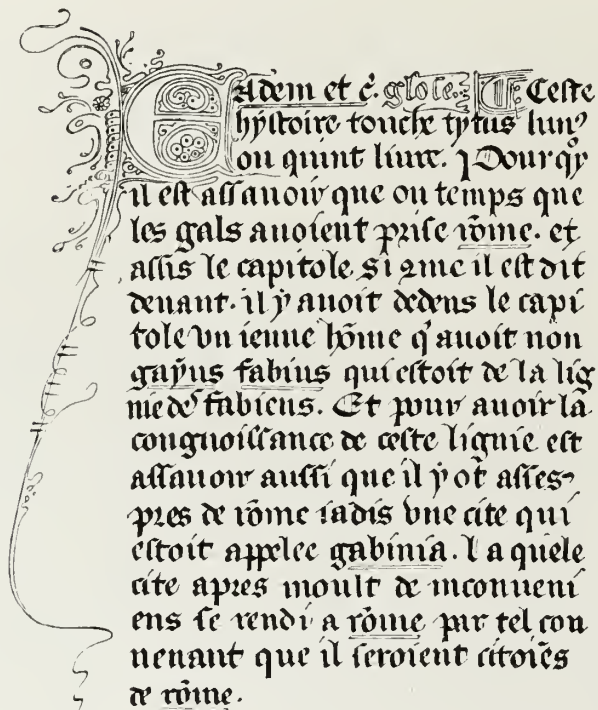 Eadem et c̄. glose. Ceste
hystoire touche tytus liuꝰ
ou quint liure. Pour qͦy
il est assauoir que ou temps que
les gals auoient prise rōme. et
assis le capitole. si ꝯme il est dit
deuant. il y auoit dedens le capi
tole vn ieune hōme q̓ auoit non
gayus fabius qui estoit de la lig
nie deˢ fabiens. Et pour auoir la
congnoissance de ceste lignie est
assauoir aussi que il y ot asses
pres de rōme iadis vne cite qui
estoit appelee gabinia. la quele
cite apres moult de inconueni
ens se rendi a rōme par tel con
uenant que il seroient citoiēs
de rōme.